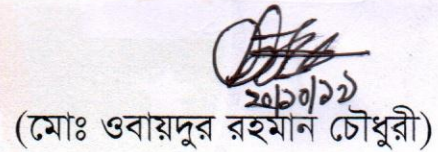 ২০/১০/১১
(মোঃ ওবায়দুর রহমান চৌধুরী)